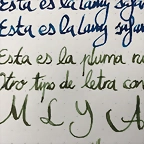 Esta es la Lamy safar
Esta es la Lamy safar
Esta es la pluma
Otro tipo de letra con
M L Y A